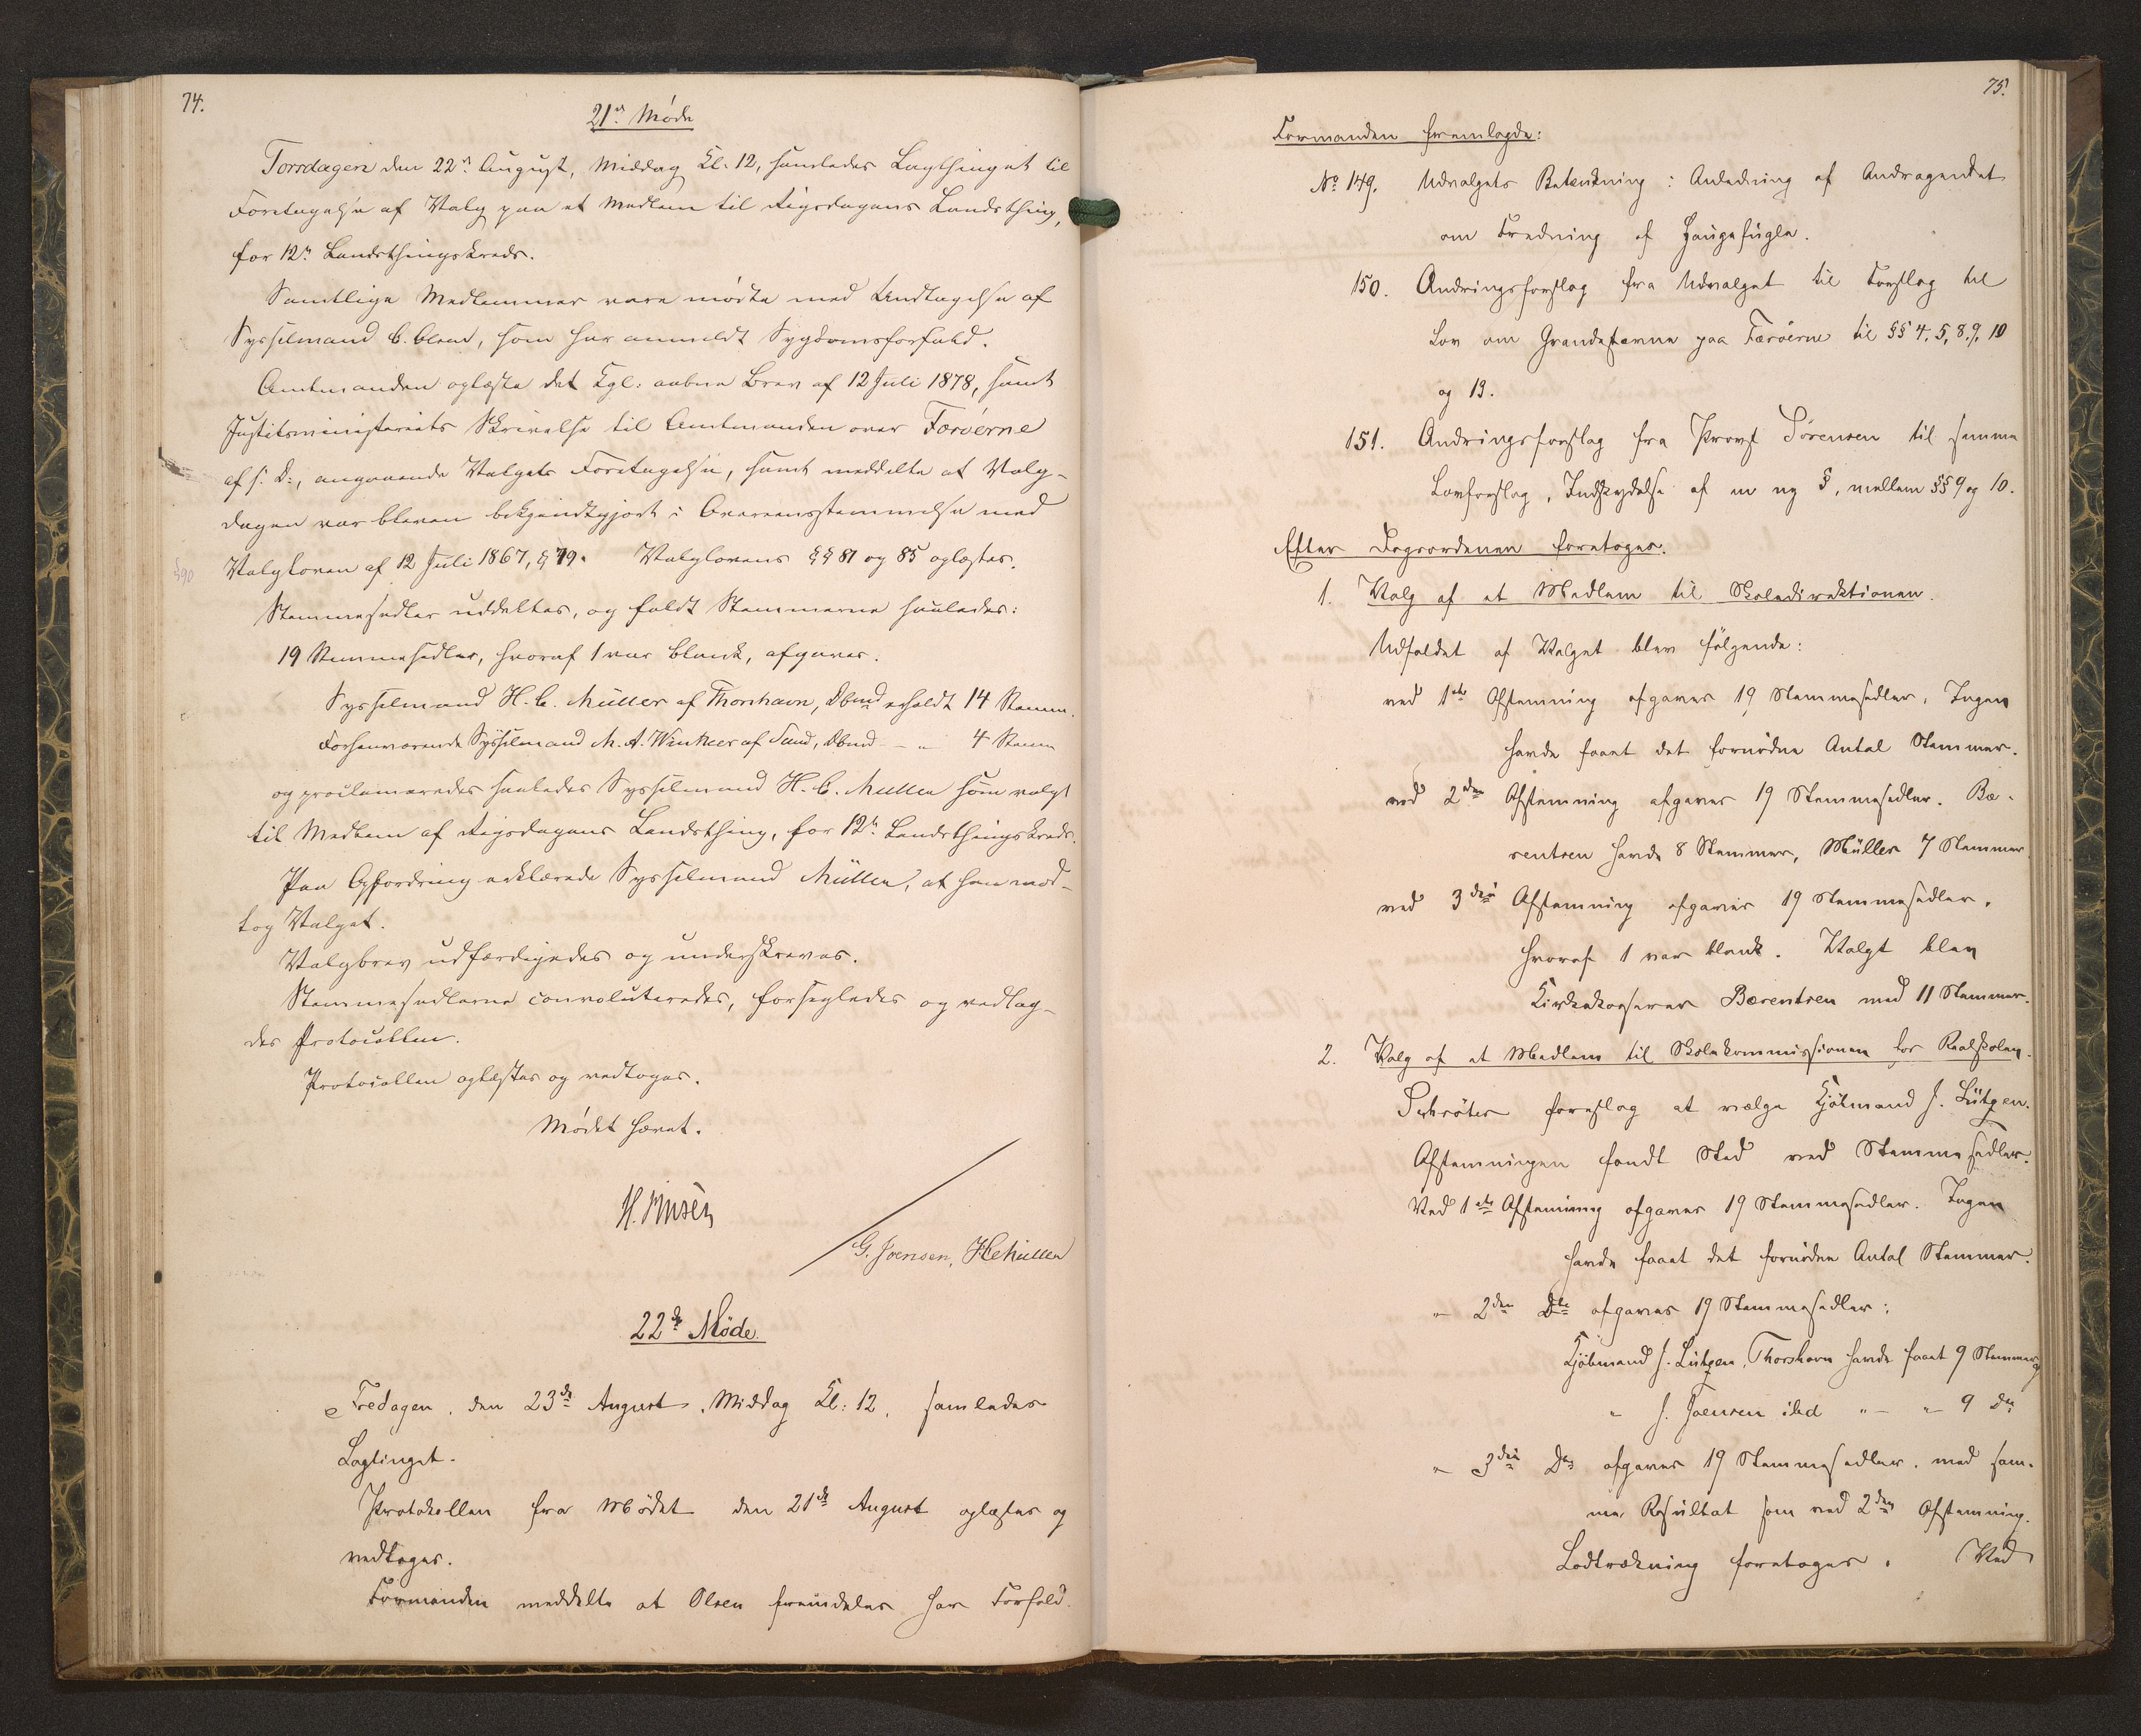 74.
21de Møde
Torsdagen den 22de August, Middag Kl. 12, samledes Lagthinget til
Foretagelse af Valg paa et Medlem til Rigsdagens Landsthing,
for 12te Landsthingskreds.
Samtlige Medlemmer vare mødte med Undtagelse af
Sysselmand C. , som har anmeldt Sygdomsforfald.
Amtmanden oplæste det Kgl: aabne Brev af 12 Juli 1878, samt
Justitsministeriets Skrivelse til Amtmanden over Færøerne
af s. D:, angaaende Valgets Foretagelse, samt meddelte at Valg-
dagen var bleven bekjendtgjort i Overeensstemmelse med
Valgloven af 12 Juli 1867, § 79. Valglovens §§ 81 og 85 oplæstes.
§90
Stemmesedler uddeltes, og faldt Stemmerne saaledes:
19 Stemmesedler, hvoraf 1 var blank, afgaves.
Sysselmand H. C. Müller af Thorshavn, Dbmd erholdt 14 Stemm.
Forhenværende Sysselmand M. A. Winther af Sand, Dbmd — " 4 Stemm
og proclameredes saaledes Sysselmand H. C. Müller som valgt
til Medlem af Rigsdagens Landsthing, for 12te Landsthingskreds.
Paa Opfordring erklærede Sysselmand Müller, at han mod-
tog Valget.
Valgbrev udfærdigedes og underskreves.
Stemmesedlerne convoluteredes, forsegledes og vedlag-
des Protocollen.
Protocollen oplæstes og vedtoges.
Mødet hævet.
H. Finsen
G. Joensen, HCMüller
22de Møde.
Fredagen, den 23de August, Middag Kl: 12, samledes
Lagtinget.
Protokollen fra Mødet den 21de August oplæstes og
vedtoges.
Formanden meddelte at Olsen fremdeles har Forfald.
75.
Formanden fremlagde:
No 149. Udvalgets Betænkning i Anledning af Andragendet
om Fredning af Haugefugle.
150. Ændringsforslag fra Udvalget til Forslag til
Lov om Grandestevne paa Færöerne til §§ 4, 5, 8, 9, 10
og 13.
151. Ændringsforslag fra Provst Sörensen til samme
Lovforslag, Indskydelse af en ny §, mellem §§ 9 og 10.
Efter Dagsordenen foretoges.
1. Valg af et Medlem til Skoledirektionen.
Udfaldet af Valget blev følgende:
ved 1ste Afstemning afgaves 19 Stemmesedler, Ingen
havde faaet det fornødne Antal Stemmer.
ved 2den Afstemning afgaves 19 Stemmesedler. Bæ-
rentsen havde 8 Stemmer, Müller 7 Stemmer
ved 3die Afstemning afgaves 19 Stemmesedler,
hvoraf 1 var blank. Valgt blev
Kirkekasserer Bærentsen med 11 Stemmer.
2. Valg af et Medlem til Skolekommissionen for Realskolen.
Schröter foreslog at vælge Kjöbmand J. Lützen.
Afstemningen fandt Sted ved Stemmesedler.
Ved 1ste Afstemning afgaves 19 Stemmesedler. Ingen
havde faaet det fornødne Antal Stemmer.
" 2den Do afgaves 19 Stemmesedler:
Kjöbmand J. Lützen, Thorshavn havde faaet 9 Stemmer og
" J. Joensen ibd " — " 9 Do
" 3die Do afgaves 19 Stemmesedler, med sam-
me Resultat som ved 2den Afstemning.
Lodtrækning foretoges. Ved